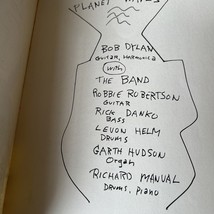 PLANET WAVES
BOB DYLAN
GUITAR, HARMONICA
with
THE BAND
ROBBIE ROBERTSON
GUITAR
RICK DANKO
BASS
LEVON HELM
DRUMS
GARTH HUDSON
Organ
RICHARD MANUAL
DRUMS, PIANO